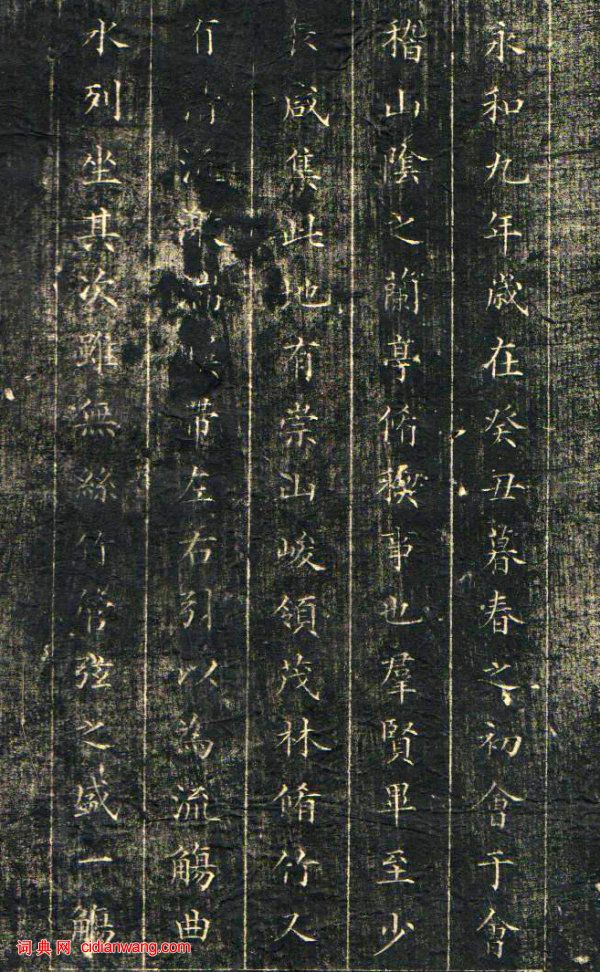 永和九年歲在癸丑暮春之初會于會
稽山陰之蘭亭脩稧事也羣賢畢至少
長咸集此地有崇山峻領茂林脩竹又
有清流激湍暎帶左右引以為流觴曲
水列坐其次雖無絲竹管弦之盛一觴
词典网 cidianwang.com